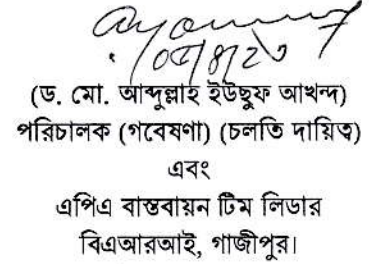 ০৫/৪/২৩
(ড. মো. আব্দুল্লাহ ইউছুফ আখন্দ)
পরিচালক (গবেষণা) (চলতি দায়িত্ব)
এবং
এপিএ বাস্তবায়ন টিম লিডার
বিএআরআই, গাজীপুর।